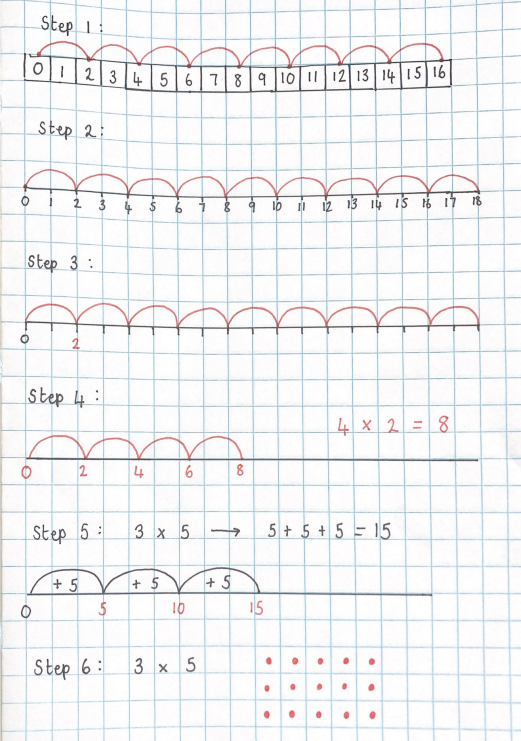 Step 1:
0 1 2 3 4 5 6 7 8 9 10 11 12 13 14 15 16
Step 2:
0 1 2 3 4 5 6 7 8 9 10 11 12 13 14 15 16 17 18
Step 3:
0 2
Step 4:
4 × 2 = 8
0 2 4 6 8
Step 5: 3 × 5 → 5 + 5 + 5 = 15
+ 5 + 5 + 5
0 5 10 15
Step 6: 3 × 5